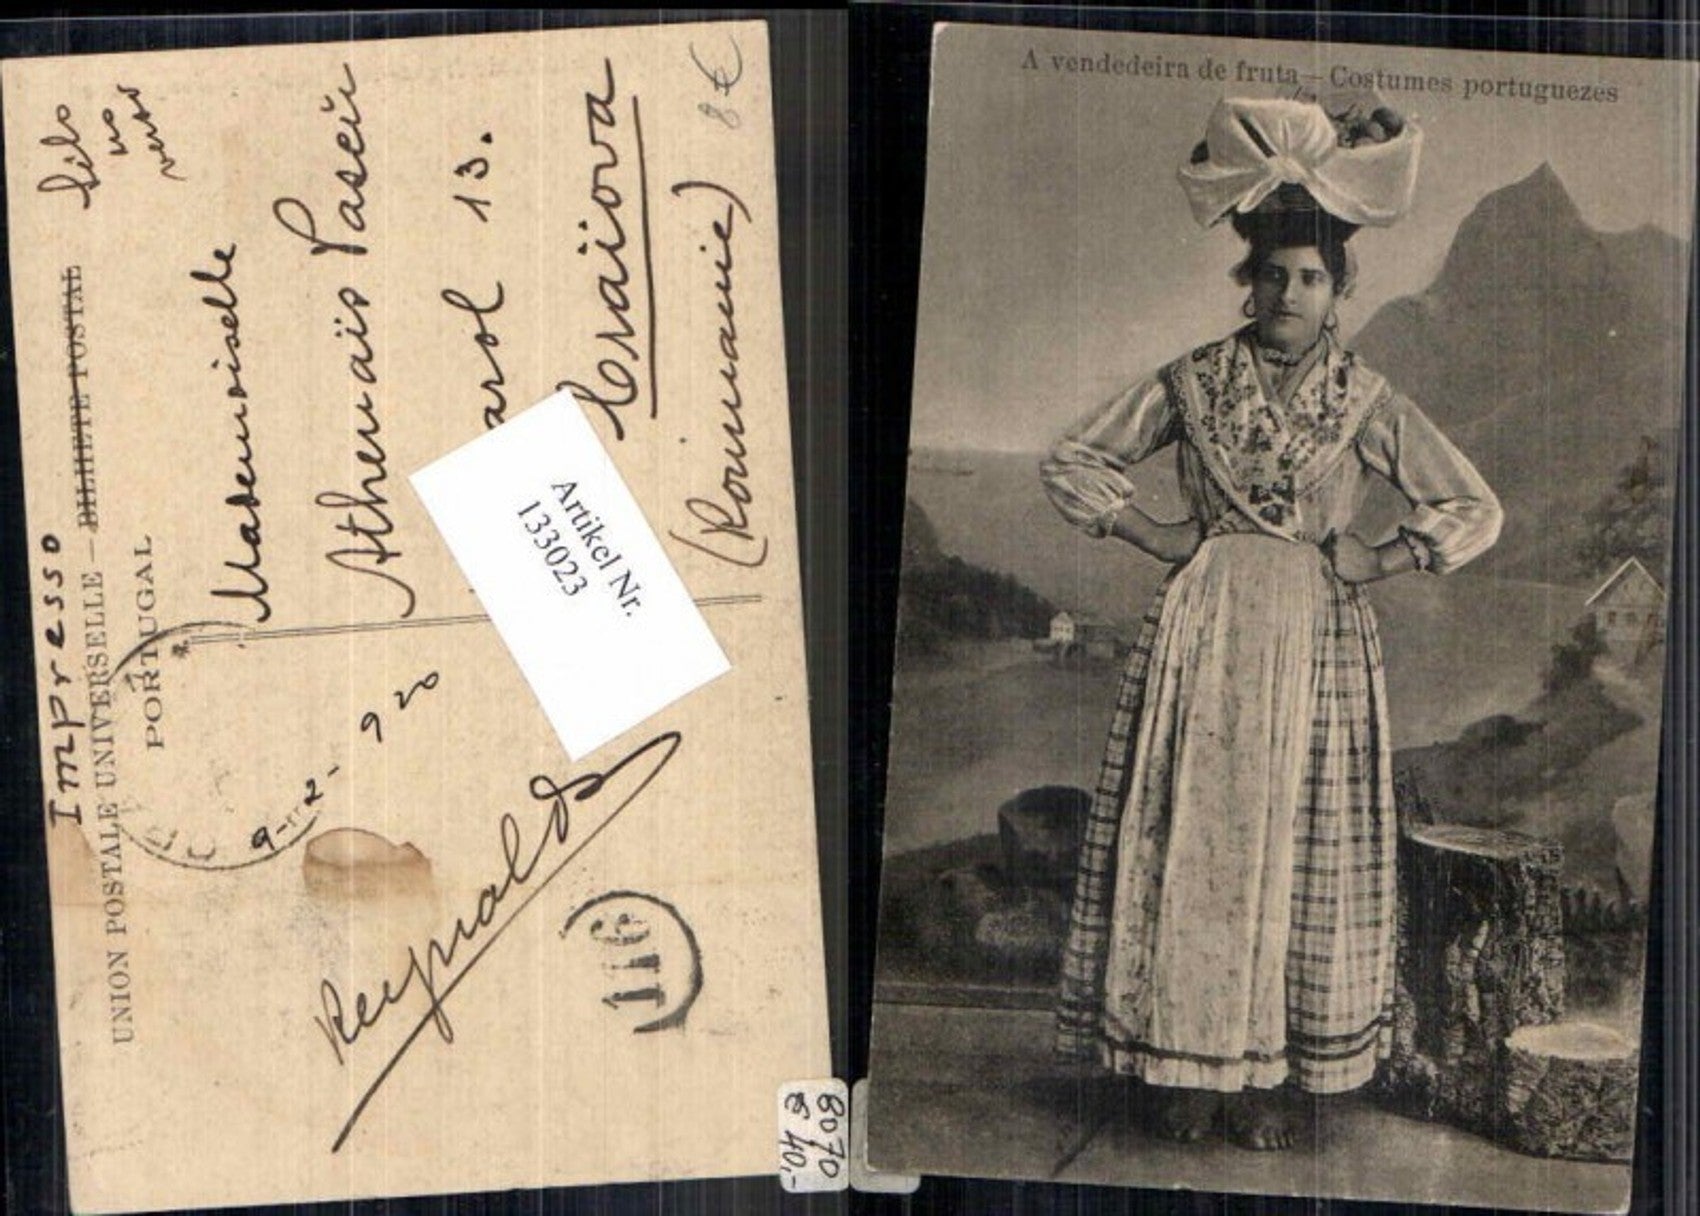 Impresso
Selo
no
verso
UNION POSTALE UNIVERSELLE – BILHETE POSTAL
PORTUGAL
Mademoiselle
Athenaïs Paseiu
arol 13.
Craïova
(Roumanie)
8 €
9-2-920
Reynaldo
116
Artikel Nr.
133023
8070
€ 40,-
A vendedeira de fruta – Costumes portuguezes